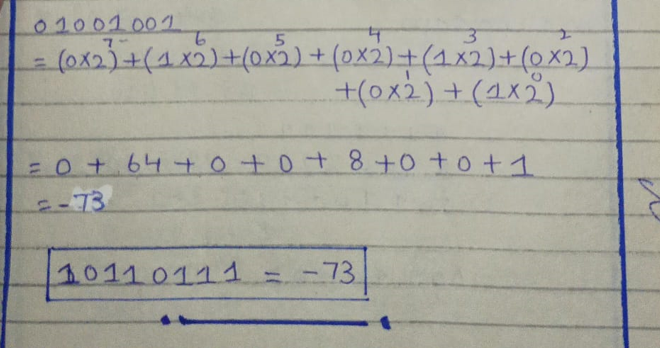 01001001
= (0×2⁷) + (1×2⁶) + (0×2⁵) + (0×2⁴) + (1×2³) + (0×2²)
+ (0×2¹) + (1×2⁰)
= 0 + 64 + 0 + 0 + 8 + 0 + 0 + 1
= -73
10110111 = -73